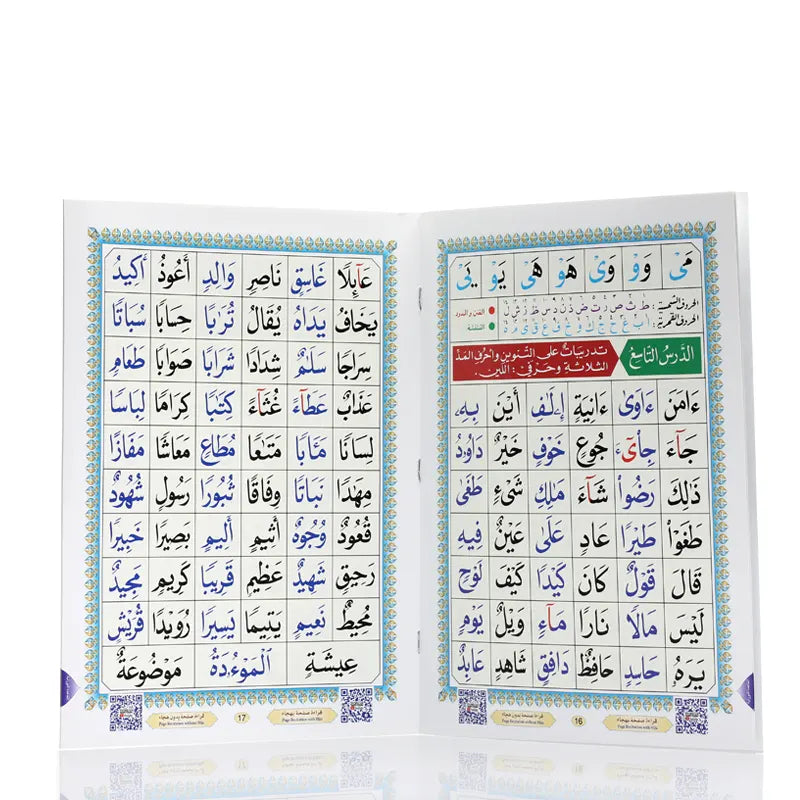 مَیْ وَوْ وَیْ هَوْ هَیْ یَوْ یَیْ
الحروف الشمسية : ط ث ص ر ت ض ذ ن د س ظ ز ش ل
الحروف القمرية : أ ب غ ح ج ك و خ ف ع ق ي م ه
الدَّرْسُ التَّاسِعُ
تَدْرِيبَاتٌ عَلَى التَّنْوِينِ وَأَحْرُفِ المَدِّ
الثَّلَاثَةِ وَحَرْفَيِ : اللِّينِ.
ءَامَنَ ءَاوَىٰ ءَانِيَةٍ إِۦلَٰفِ أَيْنَ بِهِۦ
جَآءَ جِاْىٓءَ جُوعٍ خَوْفٍ خَيْرٌ دَاوُۥدُ
ذَٰلِكَ رَضُواْ شَآءَ مَٰلِكِ شَىْءٍ طَغَىٰ
طَغَوْاْ طَيْرًا عَادٍ عَلَىٰ عَيْنٌ فِيهِ
قَالَ قَوْلٌ كَانَ كَيْدًا كَيْفَ لَوْحٍ
لَيْسَ مَالًا نَارًا مَآءٍ وَيْلٌ يَوْمٍ
يَرَهُۥ حَاسِدٍ حَافِظٌ دَافِقٍ شَاهِدٍ عَابِدٌ
قراءة صفحة بهجاء
Page Recitation with Hija
16
قراءة صفحة بدون هجاء
Page Recitation without Hija
عَآئِلًا غَاسِقٍ نَاصِرٍ وَالِدٍ أَعُوذُ أَكِيدُ
يَخَافُ يَدَاهُ يُقَالُ تُرَٰبًا حِسَابًا سُبَاتًا
سِرَاجًا سَلَٰمٌ شِدَادًا شَرَابًا صَوَابًا طَعَامٍ
عَذَابٌ عَطَآءً غُثَآءً كِتَٰبًا كِرَامًا لِبَاسًا
لِسَانًا مَـَٔابًا مَتَٰعًا مُطَاعٍ مَعَاشًا مَفَازًا
مِهَٰدًا نَبَاتًا وِفَاقًا ثُبُورًا رَسُولٍ شُهُودٌ
قُعُودٌ وُجُوهٌ أَثِيمٍ أَلِيمٍ بَصِيرًا خَبِيرًا
رَحِيقٍ شَهِيدٌ عَظِيمٍ قَرِيبًا كَرِيمٍ مَجِيدٌ
مُحِيطٌ نَعِيمٍ يَتِيمًا يَسِيرًا رُوَيْدًا قُرَيْشٍ
عِيشَةٍ الْمَوْءُۥدَةُ مَوْضُوعَةٌ
قراءة صفحة بهجاء
Page Recitation with Hija
17
قراءة صفحة بدون هجاء
Page Recitation without Hija